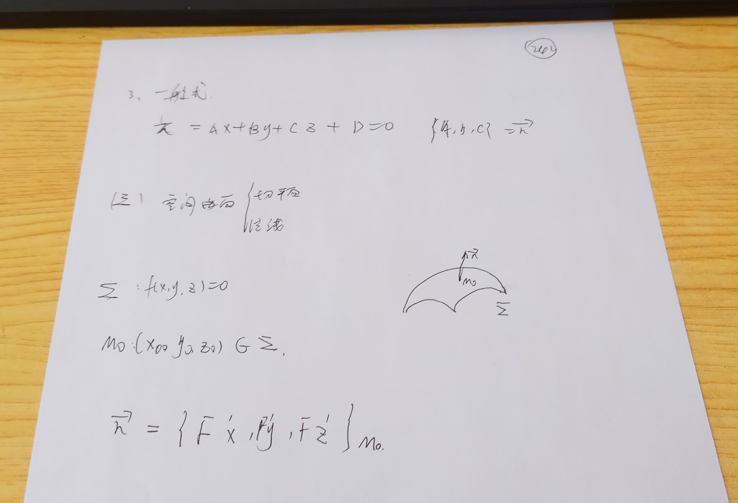 3、一般式
π = Ax+By+Cz+D=0 {A,B,C} =n⃗
(三) 空间曲面 { 切平面
法线
n⃗
M₀
Σ
Σ : f(x,y,z)=0
M₀:(x₀, y₀, z₀) ∈ Σ.
n⃗ = { F'x , F'y , F'z } M₀.